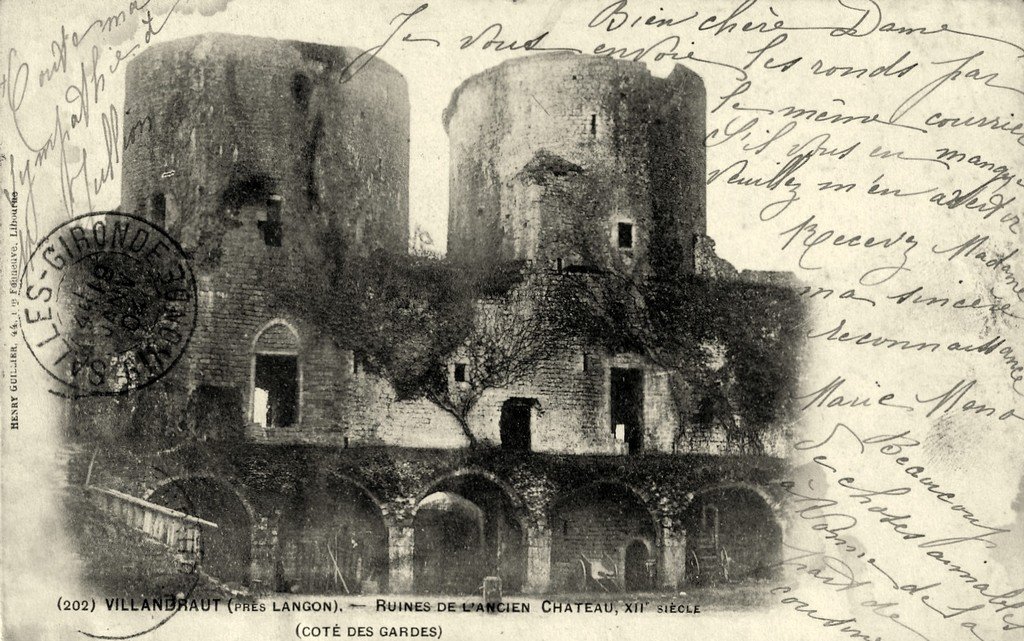 Bien chère Dame
Je vous envoie les ronds par
le même courrier
S'il vous en manque
Veuillez m'en avertir
Recevez Madame
ma sincère
reconnaissance
Marie
Beaucoup
de choses aimables
à de la
part de
cousine
Toute ma
sympathie à
Julien
HENRY GUILLIER, 44, Libourne
GIRONDE
(202) VILLANDRAUT (PRÈS LANGON). — RUINES DE L'ANCIEN CHATEAU, XIIe SIÈCLE
(COTÉ DES GARDES)